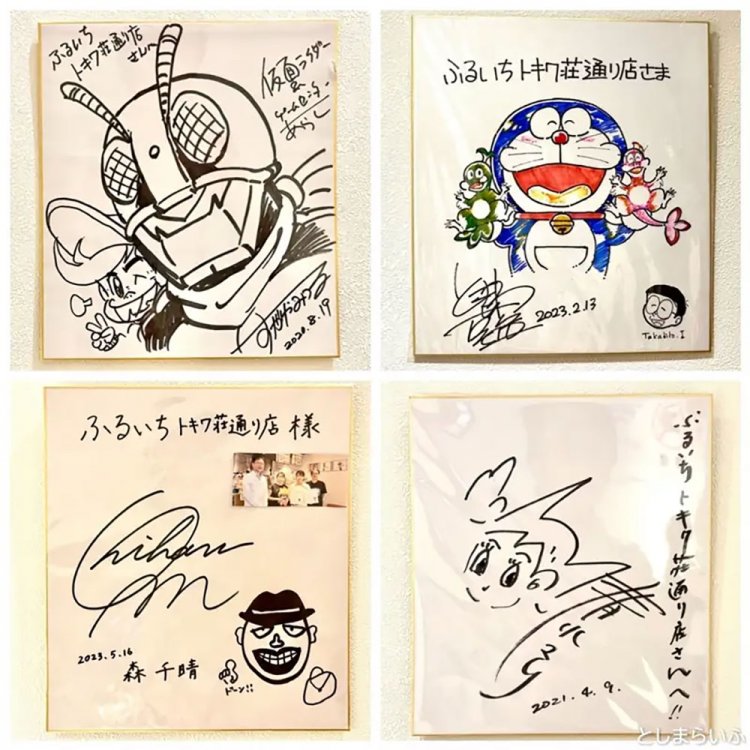 ふるいち
トキワ荘通り店
さんへ
仮面ライダー
ゲームセンター
あらし
すがやみつる
2020.8.19
ふるいちトキワ荘通り店さま
2023.2.13
Takahiro.I
ふるいち トキワ荘通り店 様
Chiharu
2023.5.16
森 千晴
ドーン!!
ふるいち トキワ荘通り店さんへ!!
2021.4.9.
としまらいふ